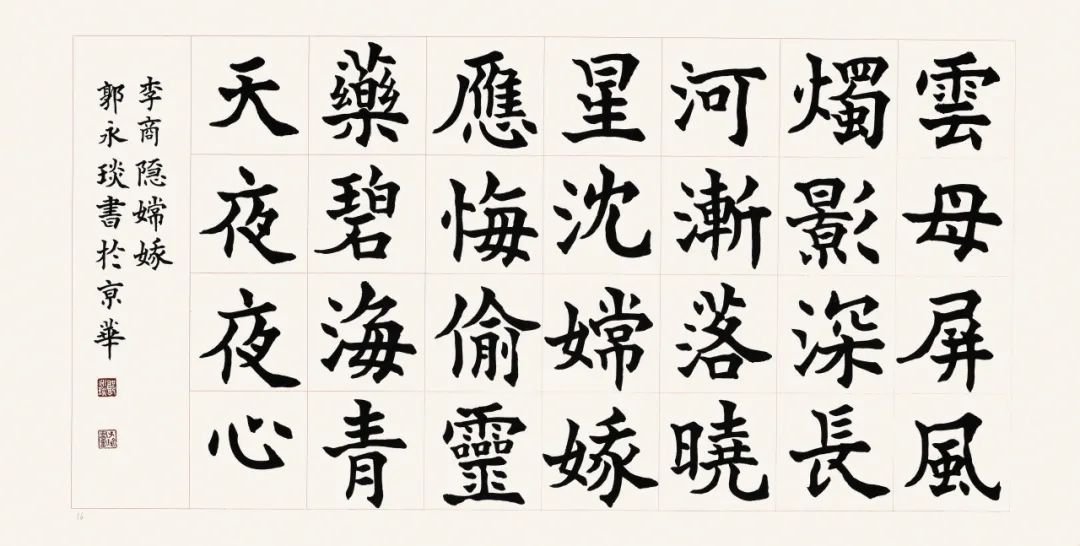 雲母屏風
燭影深長
河漸落曉
星沈嫦娥
應悔偷靈
藥碧海青
天夜夜心
李商隐嫦娥
郭永琰書於京華